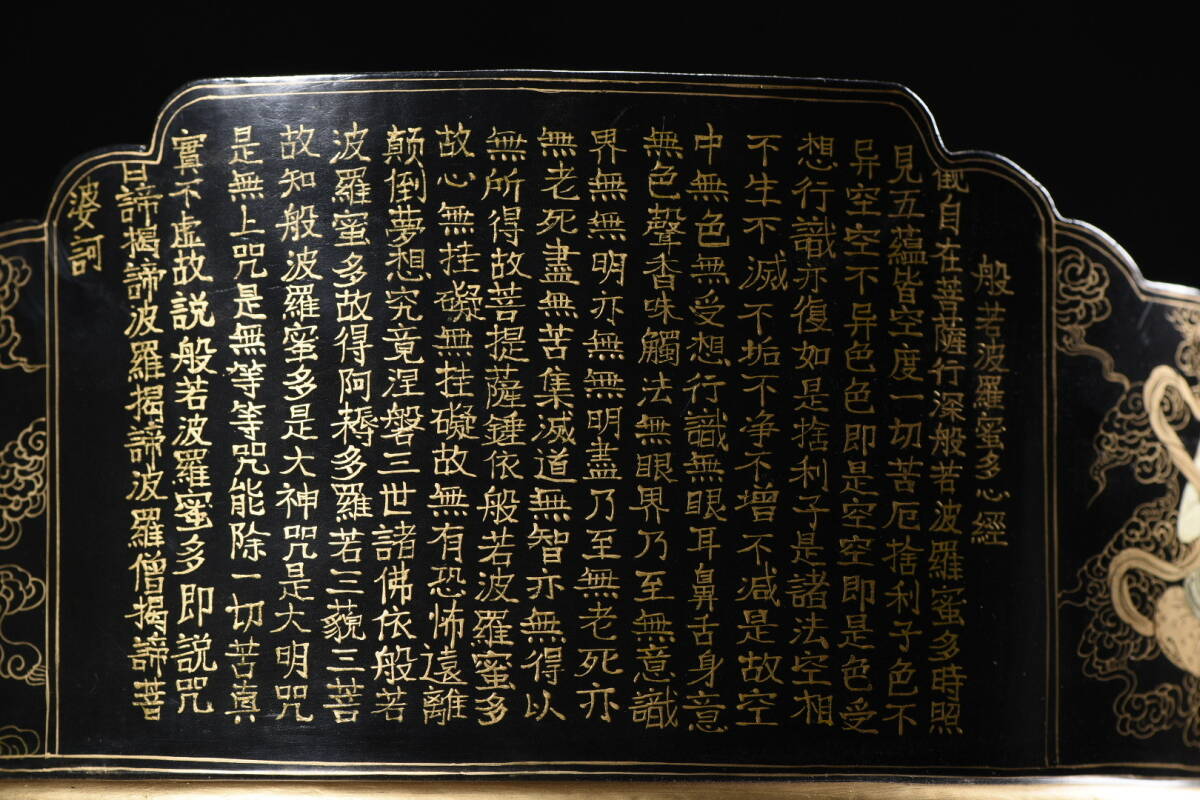 般若波羅蜜多心經
觀自在菩薩行深般若波羅蜜多時照
見五蘊皆空度一切苦厄捨利子色不
异空空不异色色即是空空即是色受
想行識亦復如是捨利子是諸法空相
不生不滅不垢不净不增不减是故空
中無色無受想行識無眼耳鼻舌身意
無色聲香味觸法無眼界乃至無意識
界無無明亦無無明盡乃至無老死亦
無老死盡無苦集滅道無智亦無得以
無所得故菩提薩埵依般若波羅蜜多
故心無挂礙無挂礙故無有恐怖遠離
顛倒夢想究竟涅磐三世諸佛依般若
波羅蜜多故得阿耨多羅若三藐三菩
故知般波羅蜜多是大神咒是大明咒
是無上咒是無等等咒能除一切苦真
實不虛故説般若波羅蜜多即説咒
曰諦揭諦波羅揭諦波羅僧揭諦菩
婆訶